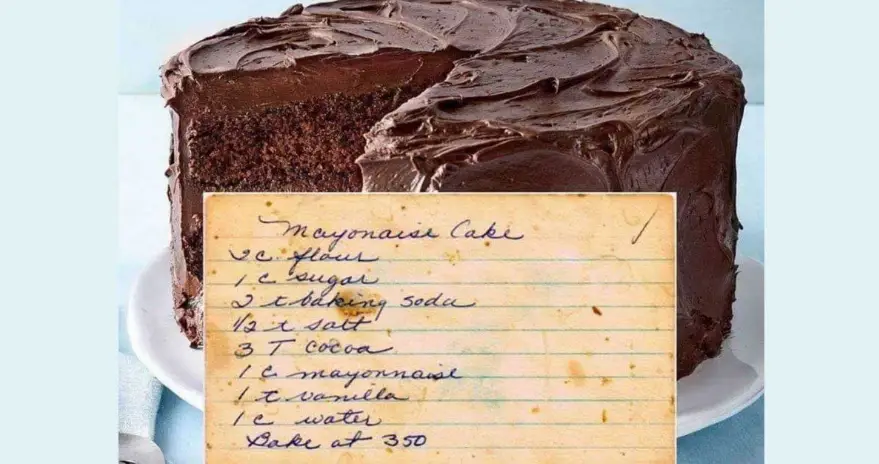 Mayonaise Cake
2 c. flour
1 c sugar
2 t baking soda
1/2 t salt
3 T cocoa
1 c. mayonnaise
1 t vanilla
1 c water
Bake at 350